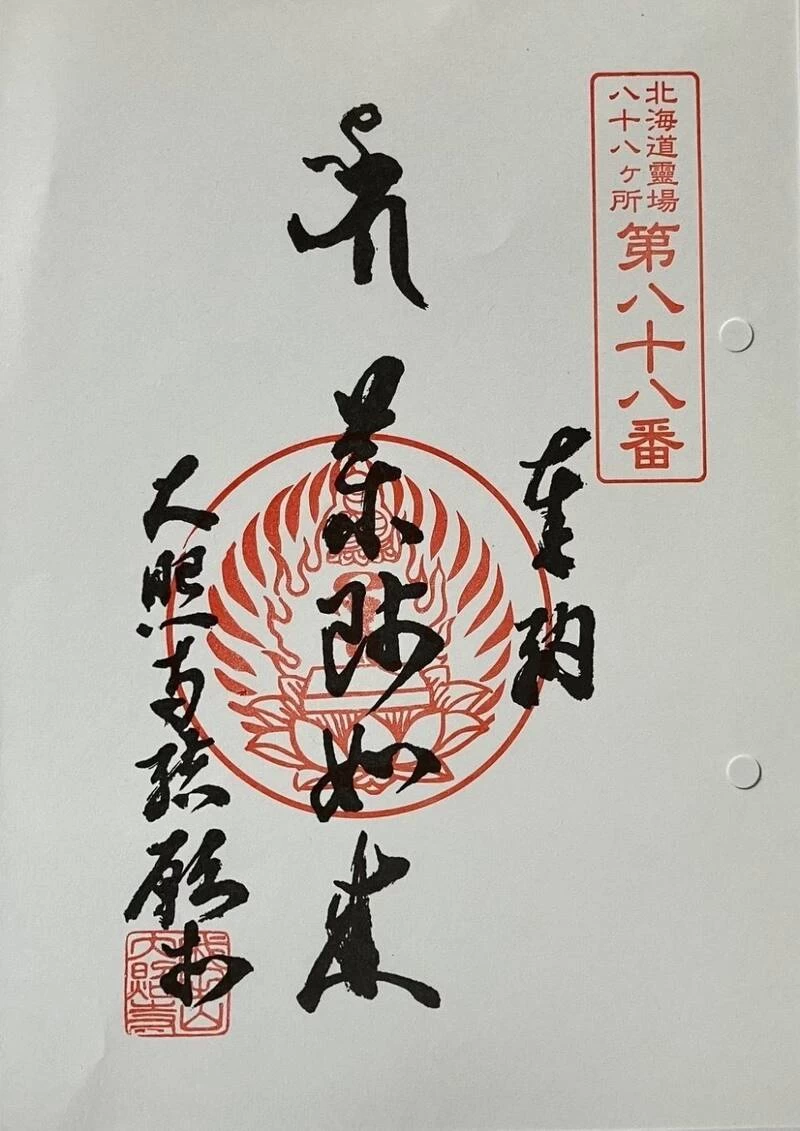 北海道靈場
八十八ヶ所
第八十八番
奉納
薬師如来
大照寺結願所